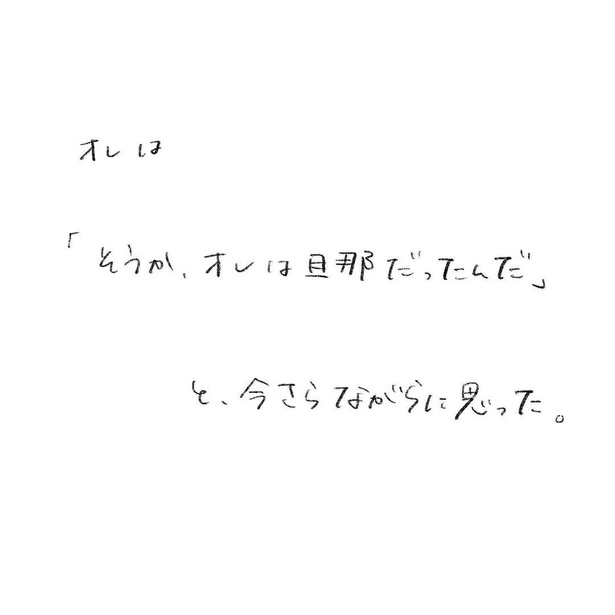 オレは
「そうか、オレは旦那だったんだ」
と、今さらながらに思った。